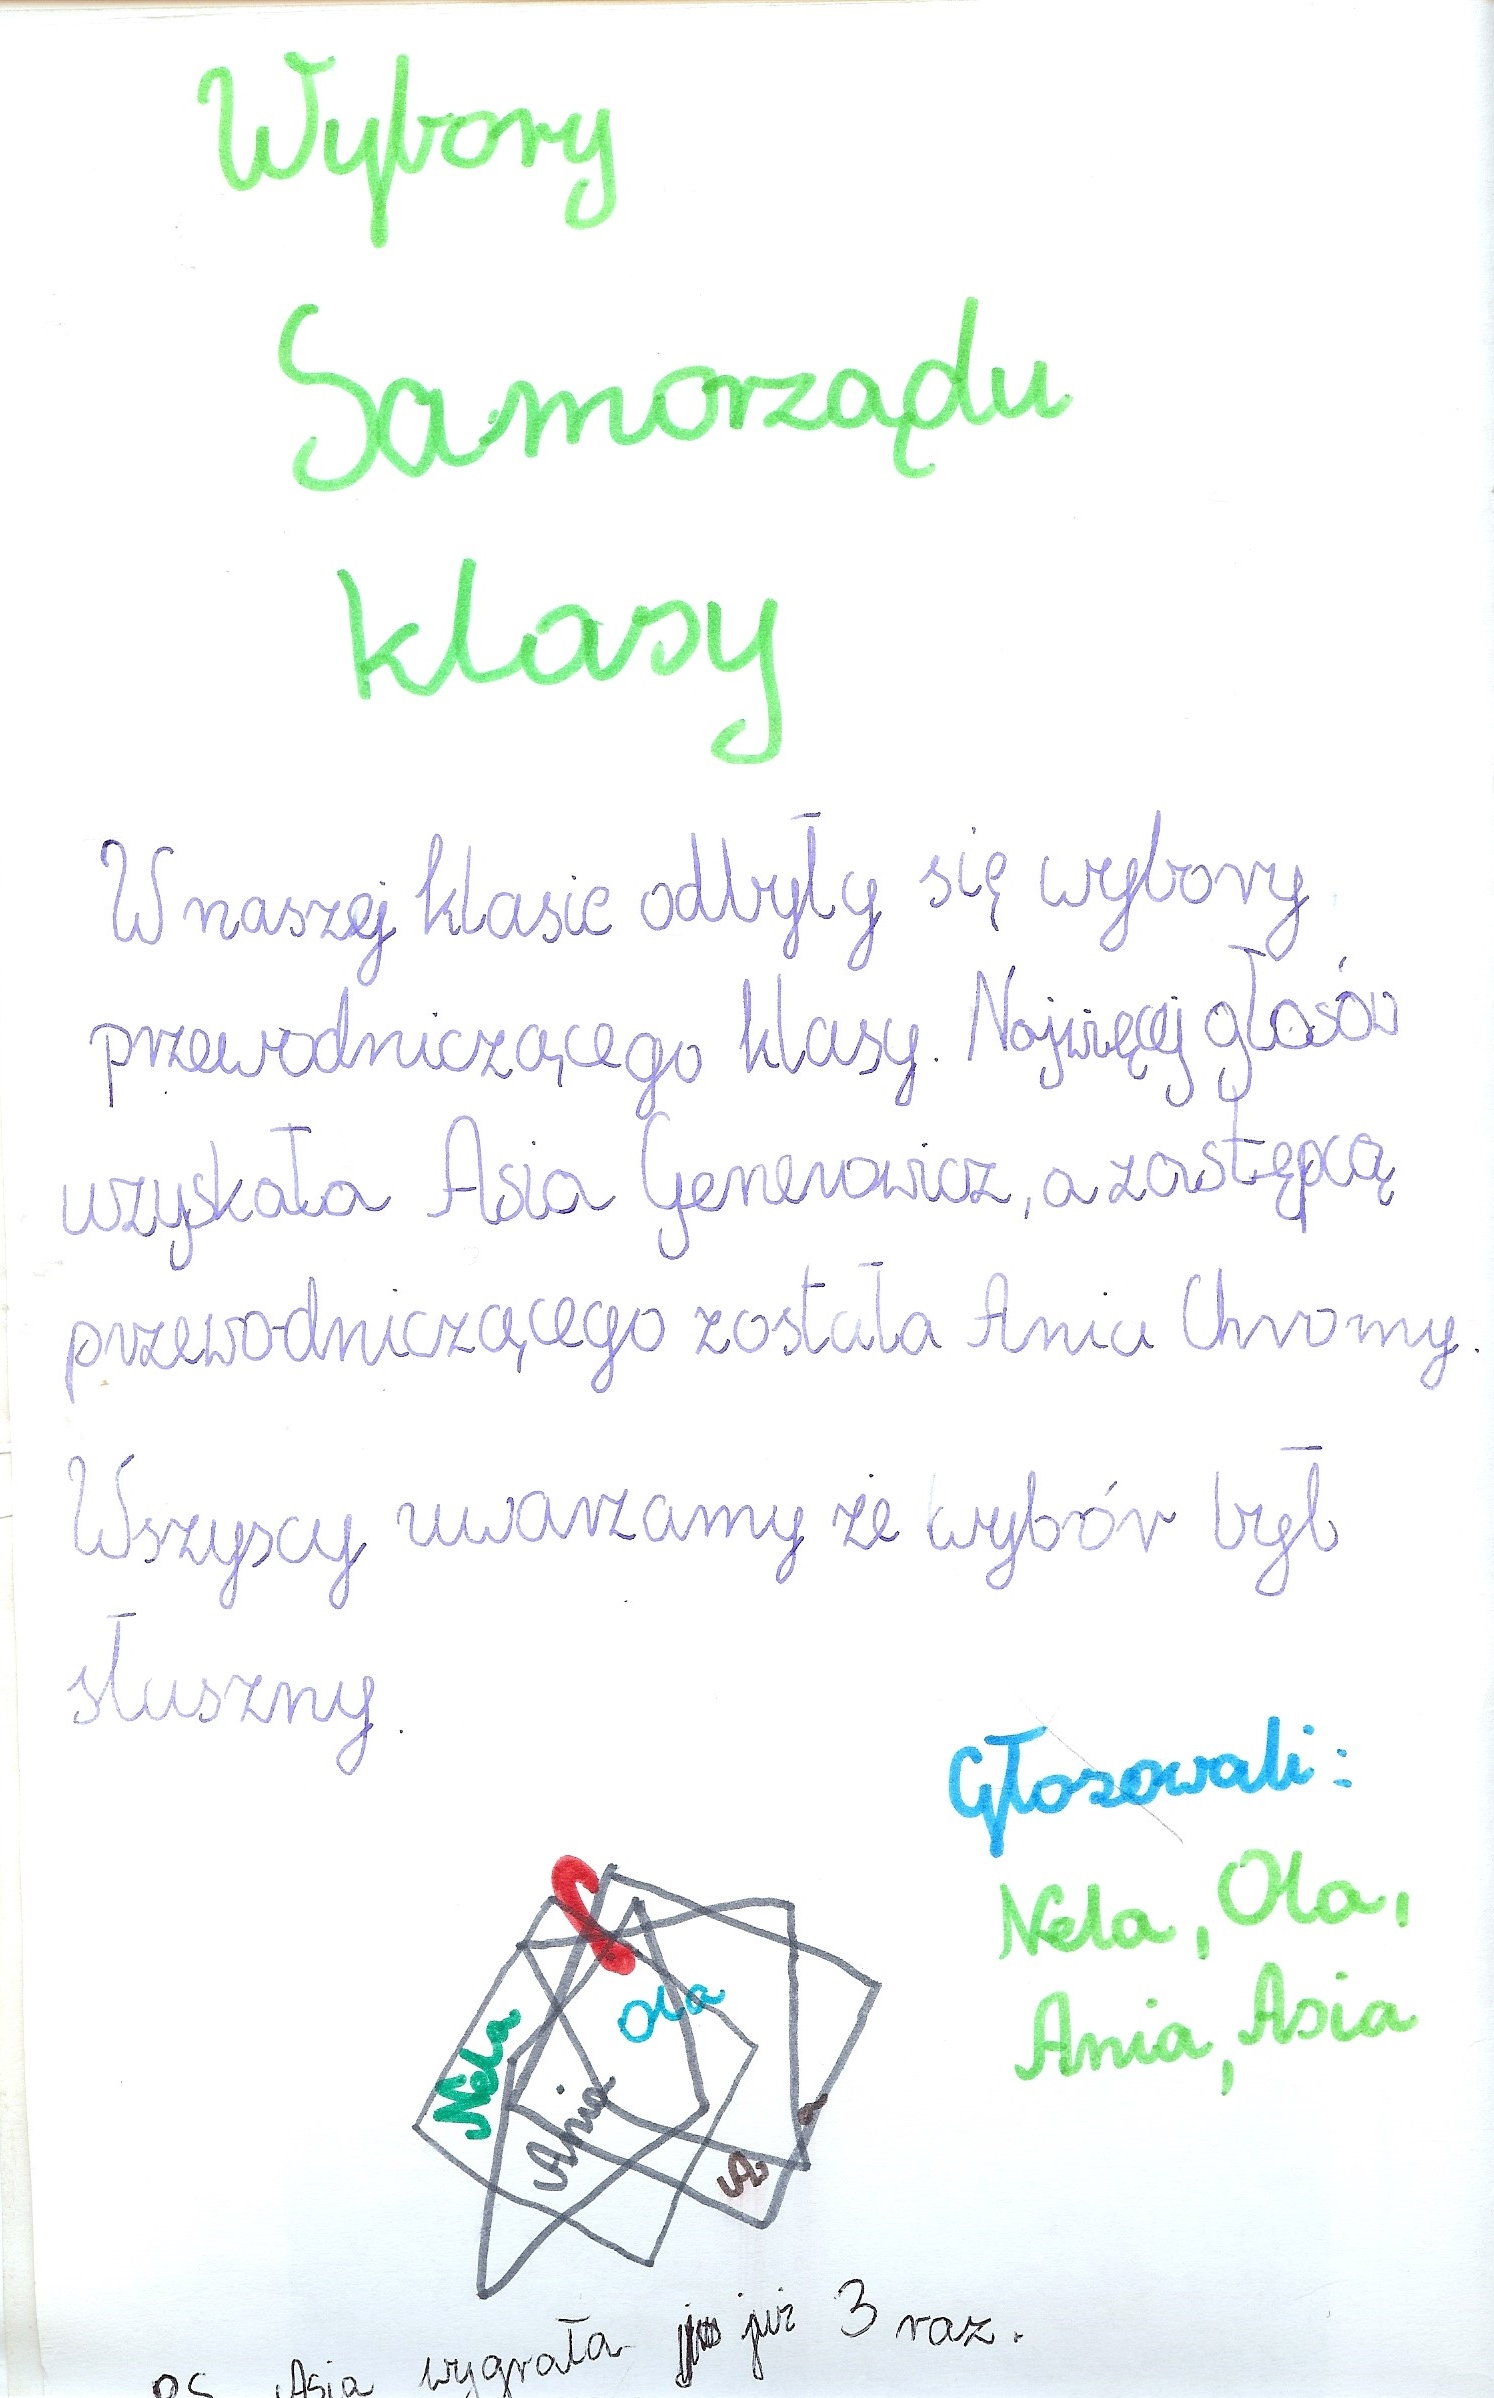 Wybory
Samorządu
klasy
W naszej klasie odbyły się wybory
przewodniczącego klasy. Najwięcej głosów
uzyskała Asia Generowicz, a zastępcą
przewodniczącego została Ania Chromy.
Wszyscy uwarzamy że wybór był
słuszny.
Głosowali:
Nela, Ola,
Ania, Asia
Ola
Nela
Ania
A a
PS. Asia wygrała już 3 raz.